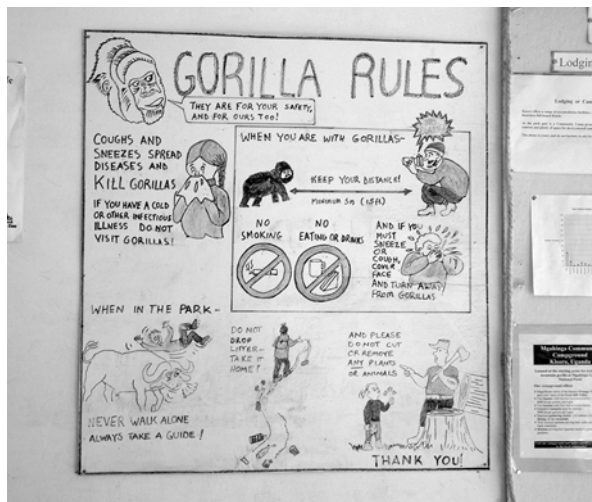 GORILLA RULES
THEY ARE FOR YOUR SAFETY,
AND FOR OURS TOO!
COUGHS AND
SNEEZES SPREAD
DISEASES AND
KILL GORILLAS
IF YOU HAVE A COLD
OR OTHER INFECTIOUS
ILLNESS DO NOT
VISIT GORILLAS!
WHEN YOU ARE WITH GORILLAS-
KEEP YOUR DISTANCE!
MINIMUM 5m (15ft)
NO
SMOKING
NO
EATING OR DRINKS
AND IF YOU
MUST
SNEEZE
OR
COUGH,
COVER
FACE
AND TURN AWAY
FROM GORILLAS
WHEN IN THE PARK-
NEVER WALK ALONE
ALWAYS TAKE A GUIDE!
DO NOT
DROP
LITTER-
TAKE IT
HOME!
AND PLEASE
DO NOT CUT
OR REMOVE
ANY PLANTS
OR ANIMALS
THANK YOU!
Lodging
Lodging or Cam
Mgahinga Commun
Campground
Kisoro, Uganda